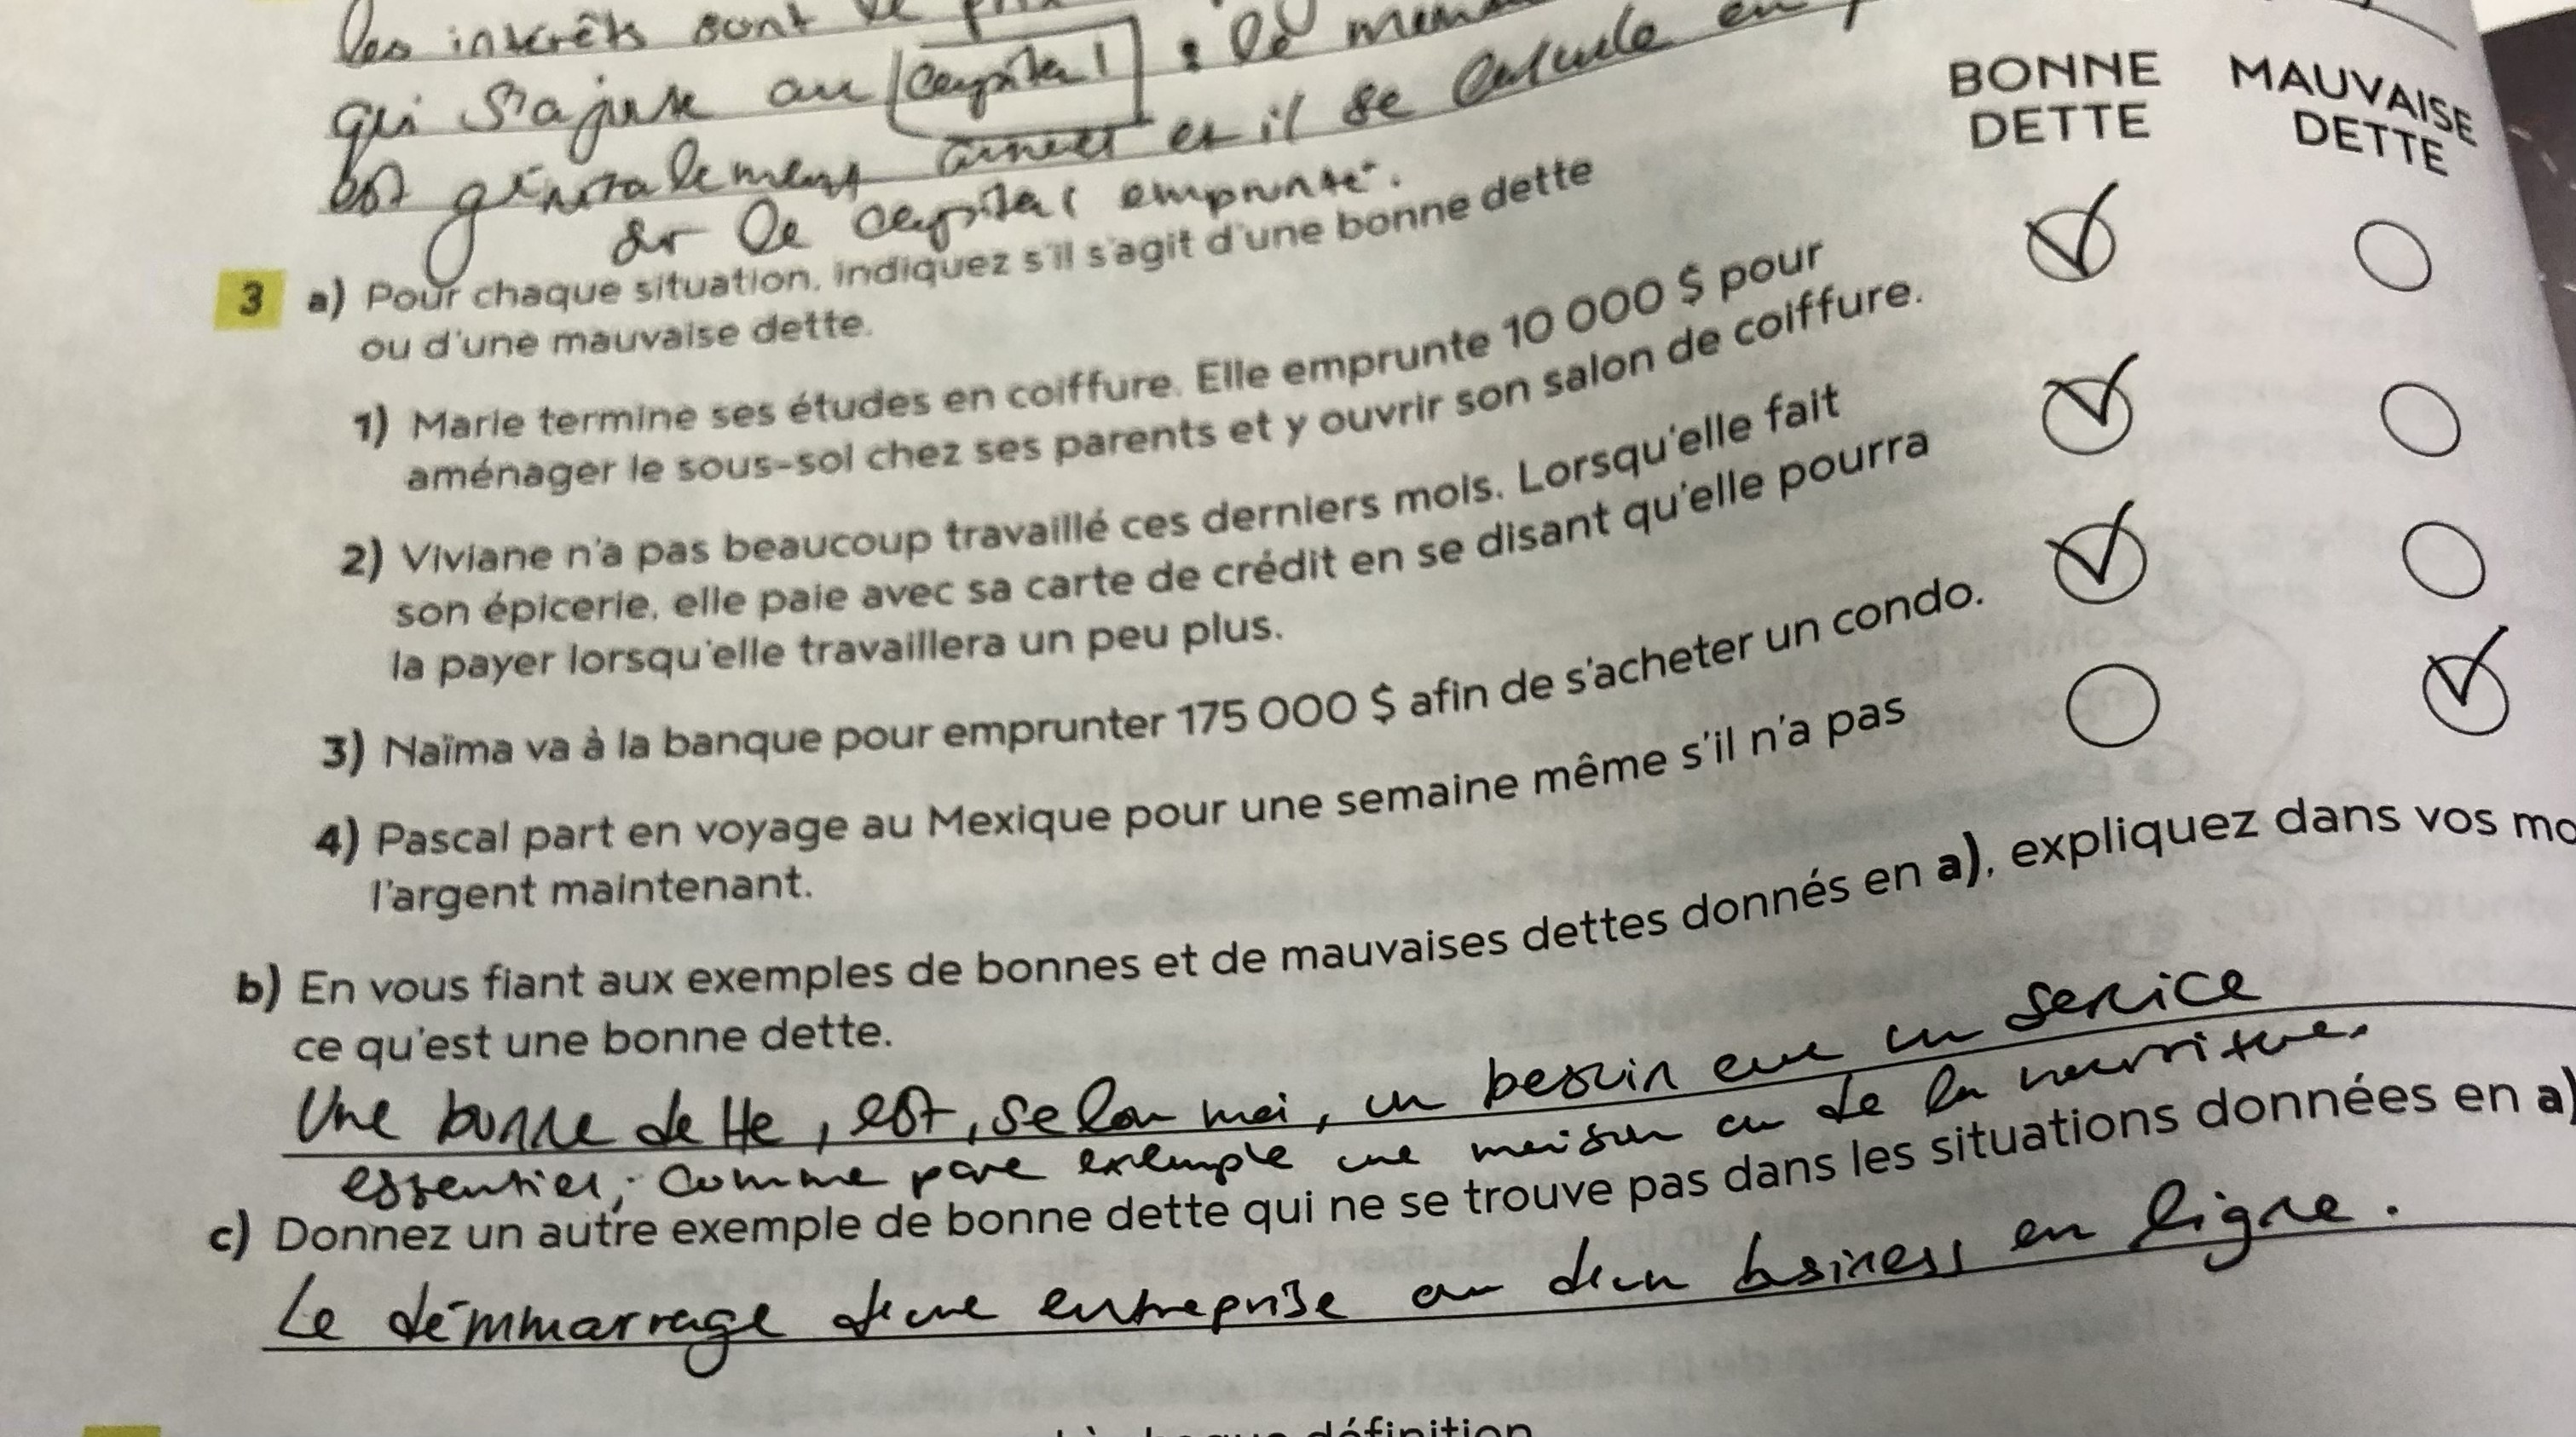 les intérêts sont le prix
qui s'ajuste au capital : le
est généralement annuel et il se calcule en
sur le capital emprunté.
BONNE
DETTE
MAUVAISE
DETTE
3 a) Pour chaque situation, indiquez s'il s'agit d'une bonne dette
ou d'une mauvaise dette.
1) Marie termine ses études en coiffure. Elle emprunte 10 000 $ pour
aménager le sous-sol chez ses parents et y ouvrir son salon de coiffure.
2) Viviane n'a pas beaucoup travaillé ces derniers mois. Lorsqu'elle fait
son épicerie, elle paie avec sa carte de crédit en se disant qu'elle pourra
la payer lorsqu'elle travaillera un peu plus.
3) Naïma va à la banque pour emprunter 175 000 $ afin de s'acheter un condo.
4) Pascal part en voyage au Mexique pour une semaine même s'il n'a pas
l'argent maintenant.
b) En vous fiant aux exemples de bonnes et de mauvaises dettes donnés en a), expliquez dans vos mo
ce qu'est une bonne dette.
Une bonne dette, est, selon moi, un besoin ou un service
essentiel, comme par exemple une maison ou de la nourriture.
c) Donnez un autre exemple de bonne dette qui ne se trouve pas dans les situations données en a)
Le démmarrage d'une entreprise ou d'un business en ligne.
définition